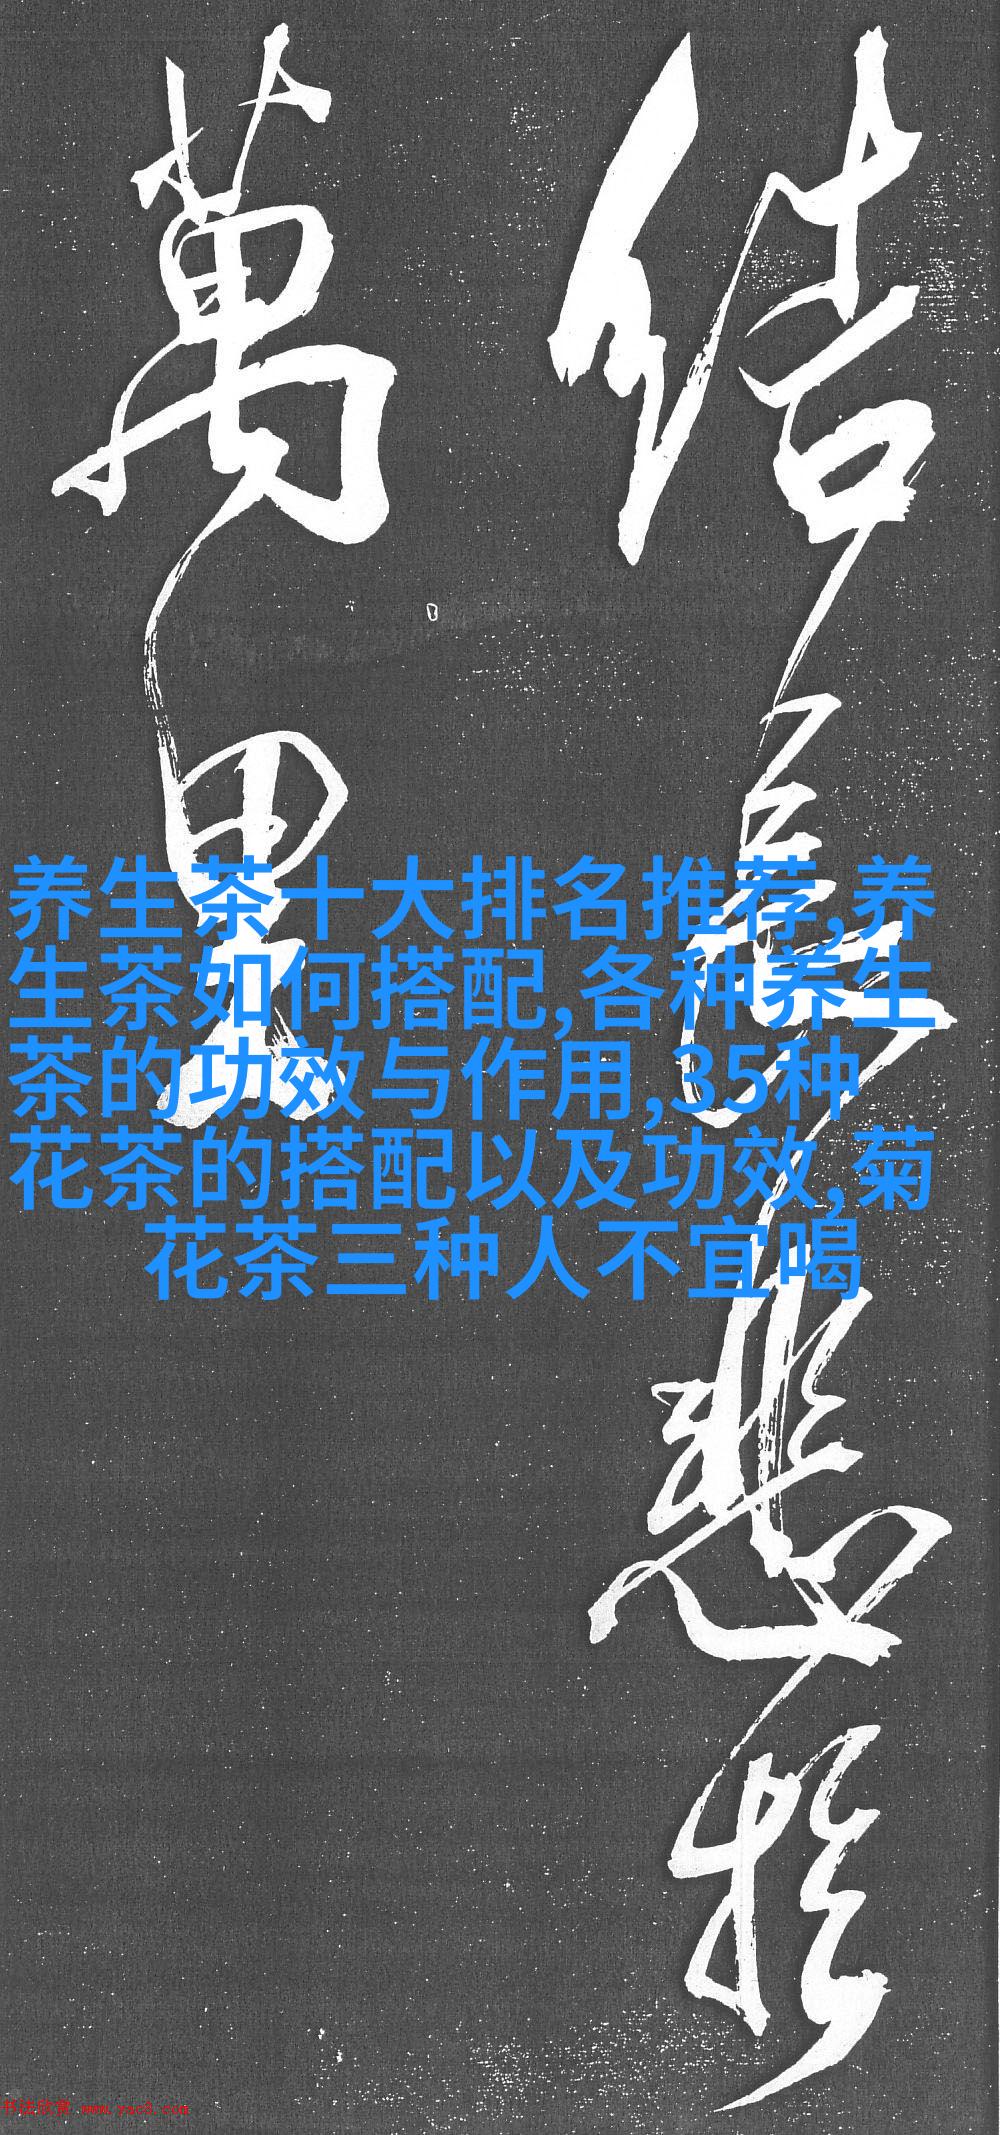 结长悲于
萬里
养生茶十大排名推荐,养
生茶如何搭配,各种养生
茶的功效与作用,35种
花茶的搭配以及功效,菊
花茶三种人不宜喝
书法欣赏 www.yac8.com